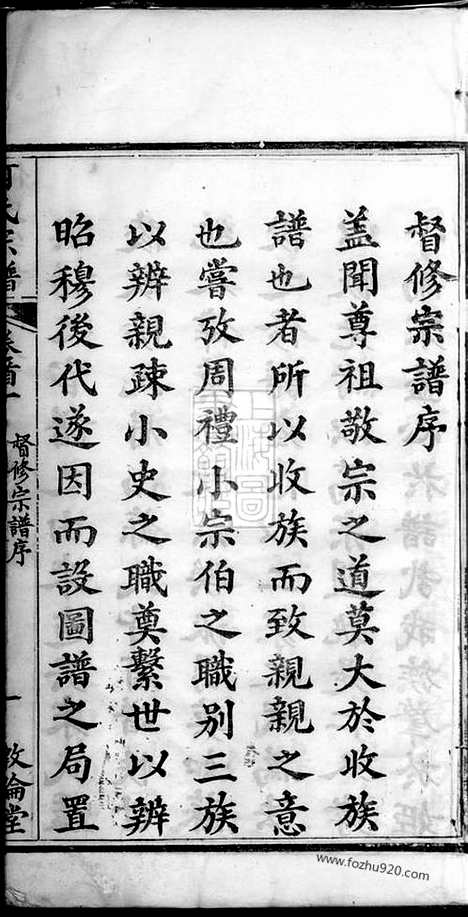 督修宗譜序
盖聞尊祖敬宗之道莫大於收族
譜也者所以收族而致親親之意
也嘗攷周禮小宗伯之職别三族
以辨親疎小史之職奠繫世以辨
昭穆後代遂因而設圖譜之局置
氏宗譜
卷首一
督修宗譜序
一
敦倫堂
www.fozhu920.com